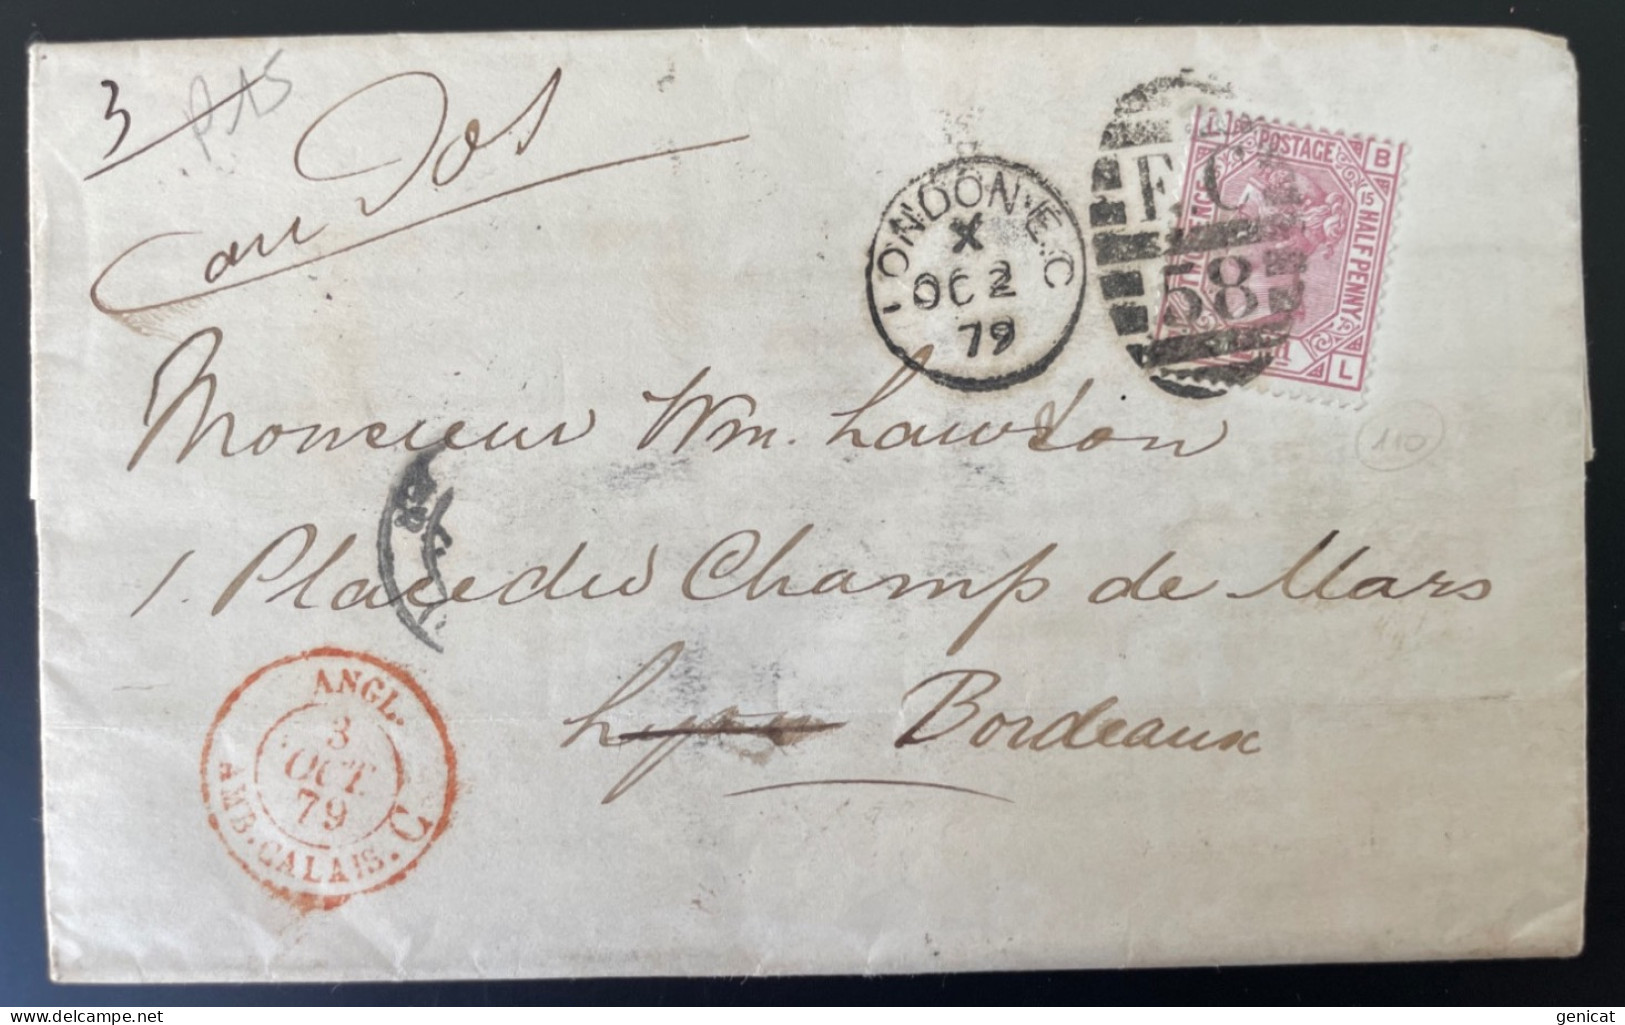 3
p 15
au Dos
LONDON.E.C
X
OC 2
79
E.C
58
POSTAGE
TWOPENCE
HALF PENNY
L B
B L
15
Monsieur Wm. Lawton
110
1. Place du Champ de Mars
Lyon Bordeaux
ANGL.
3
OCT.
79
AMB. CALAIS. C
delcampe.net
genicat